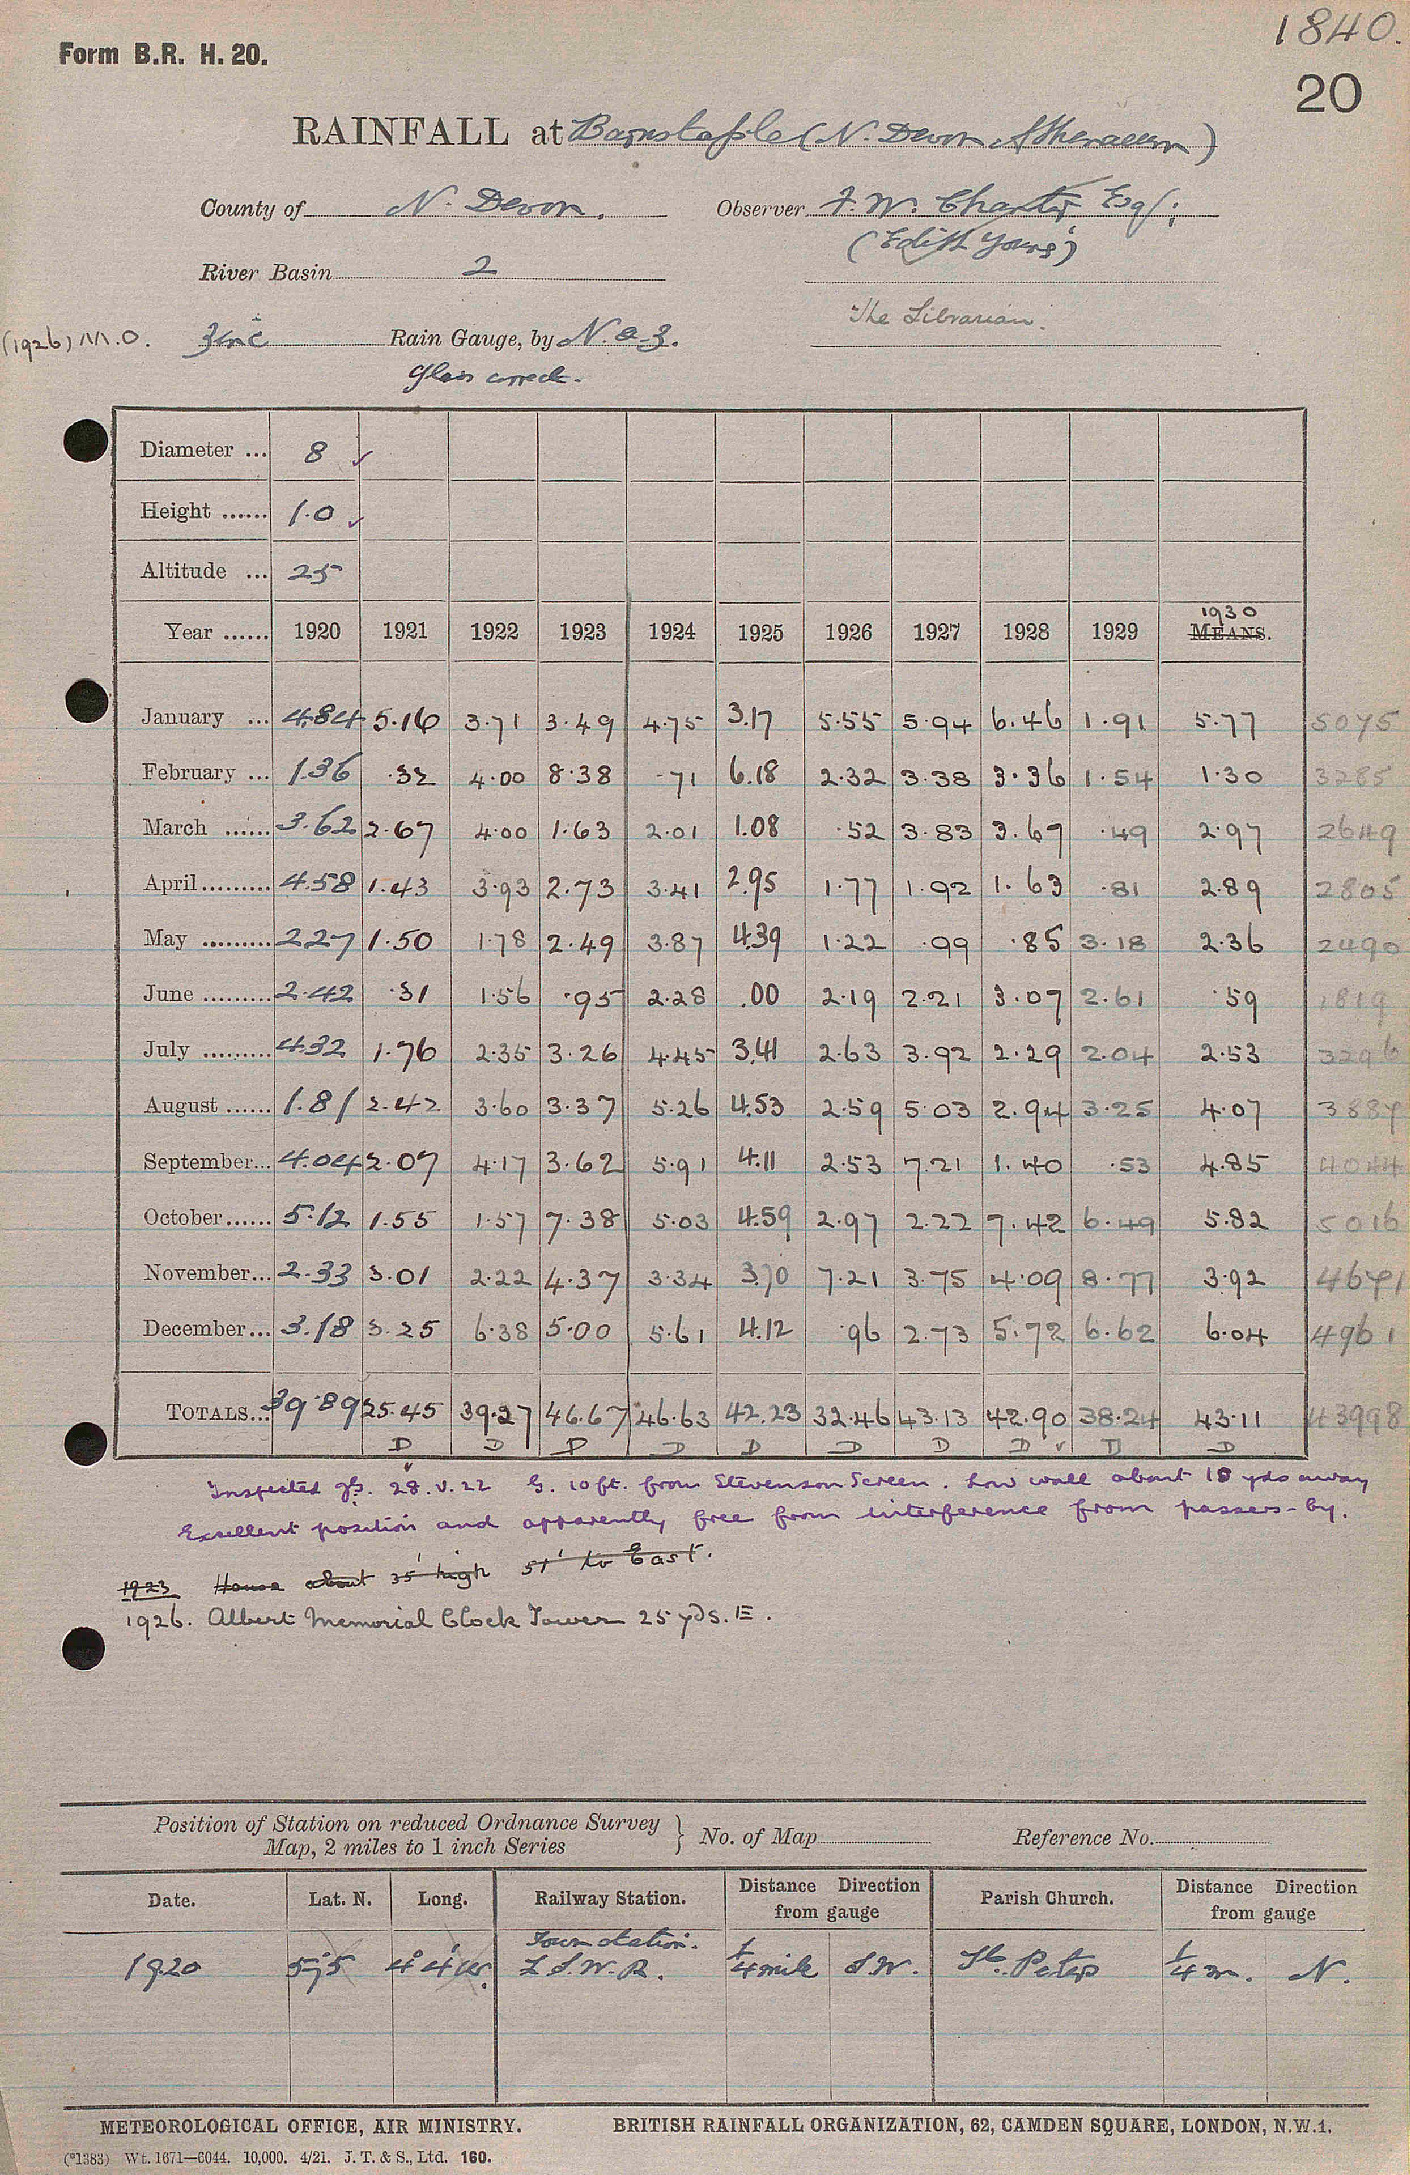 1840.
Form B.R. H. 20.
20
RAINFALL at Barnstaple (N. Devon Athenaeum)
County of N. Devon. Observer F. W. Chanter Esq;
(Edith Young)
River Basin 2
The Librarian.
(1926) M.O. Zinc Rain Gauge, by N. & Z.
Glass correct.
Diameter ... 8 ✓
Height ...... 1.0 ✓
Altitude ... 25
1930
Year ...... 1920 1921 1922 1923 1924 1925 1926 1927 1928 1929 MEANS.
January ... 4.84 5.16 3.71 3.49 4.75 3.17 5.55 5.94 6.46 1.91 5.77 5075
February ... 1.36 .32 4.00 8.38 .71 6.18 2.32 3.38 3.36 1.54 1.30 3285
March ...... 3.62 2.67 4.00 1.63 2.01 1.08 .52 3.83 3.67 .49 2.97 2649
April......... 4.58 1.43 3.93 2.73 3.41 2.95 1.77 1.92 1.63 .81 2.89 2805
May ......... 2.27 1.50 1.78 2.49 3.87 4.39 1.22 .99 .85 3.18 2.36 2490
June ......... 2.42 .31 1.56 .95 2.28 .00 2.19 2.21 3.07 2.61 .59 1819
July ......... 4.32 1.76 2.35 3.26 4.45 3.41 2.63 3.92 2.29 2.04 2.53 3296
August ...... 1.81 2.42 3.60 3.37 5.26 4.53 2.59 5.03 2.94 3.25 4.07 3887
September... 4.04 2.07 4.17 3.62 5.91 4.11 2.53 7.21 1.40 .53 4.85 4044
October...... 5.12 1.55 1.57 7.38 5.03 4.59 2.97 2.22 7.42 6.49 5.82 5016
November... 2.33 3.01 2.22 4.37 3.34 3.70 7.21 3.75 4.09 8.77 3.92 4671
December... 3.18 3.25 6.38 5.00 5.61 4.12 .96 2.73 5.72 6.62 6.04 4961
TOTALS... 39.89 25.45 39.27 46.67 46.63 42.23 32.46 43.13 42.90 38.24 43.11 43998
D D D D D D D D ✓ D D
Inspected 28.V.22 G. 10 ft. from Stevenson Screen. Low wall about 10 yds away
Excellent position and apparently free from interference from passers-by.
1923 House about 35' high 51' to East.
1926. Albert Memorial Clock Tower 25 yds. E.
Position of Station on reduced Ordnance Survey
Map, 2 miles to 1 inch Series } No. of Map Reference No.
Date. Lat. N. Long. Railway Station. Distance from gauge Direction Parish Church. Distance from gauge Direction
1920 51°5 4°4'W. Town Station. L.S.W.R. 1/4 mile S.W. St. Peters 1/4 m. N.
METEOROLOGICAL OFFICE, AIR MINISTRY. BRITISH RAINFALL ORGANIZATION, 62, CAMDEN SQUARE, LONDON, N.W.1.
(*1383) Wt. 1671—6044. 10,000. 4/21. J. T. & S., Ltd. 160.